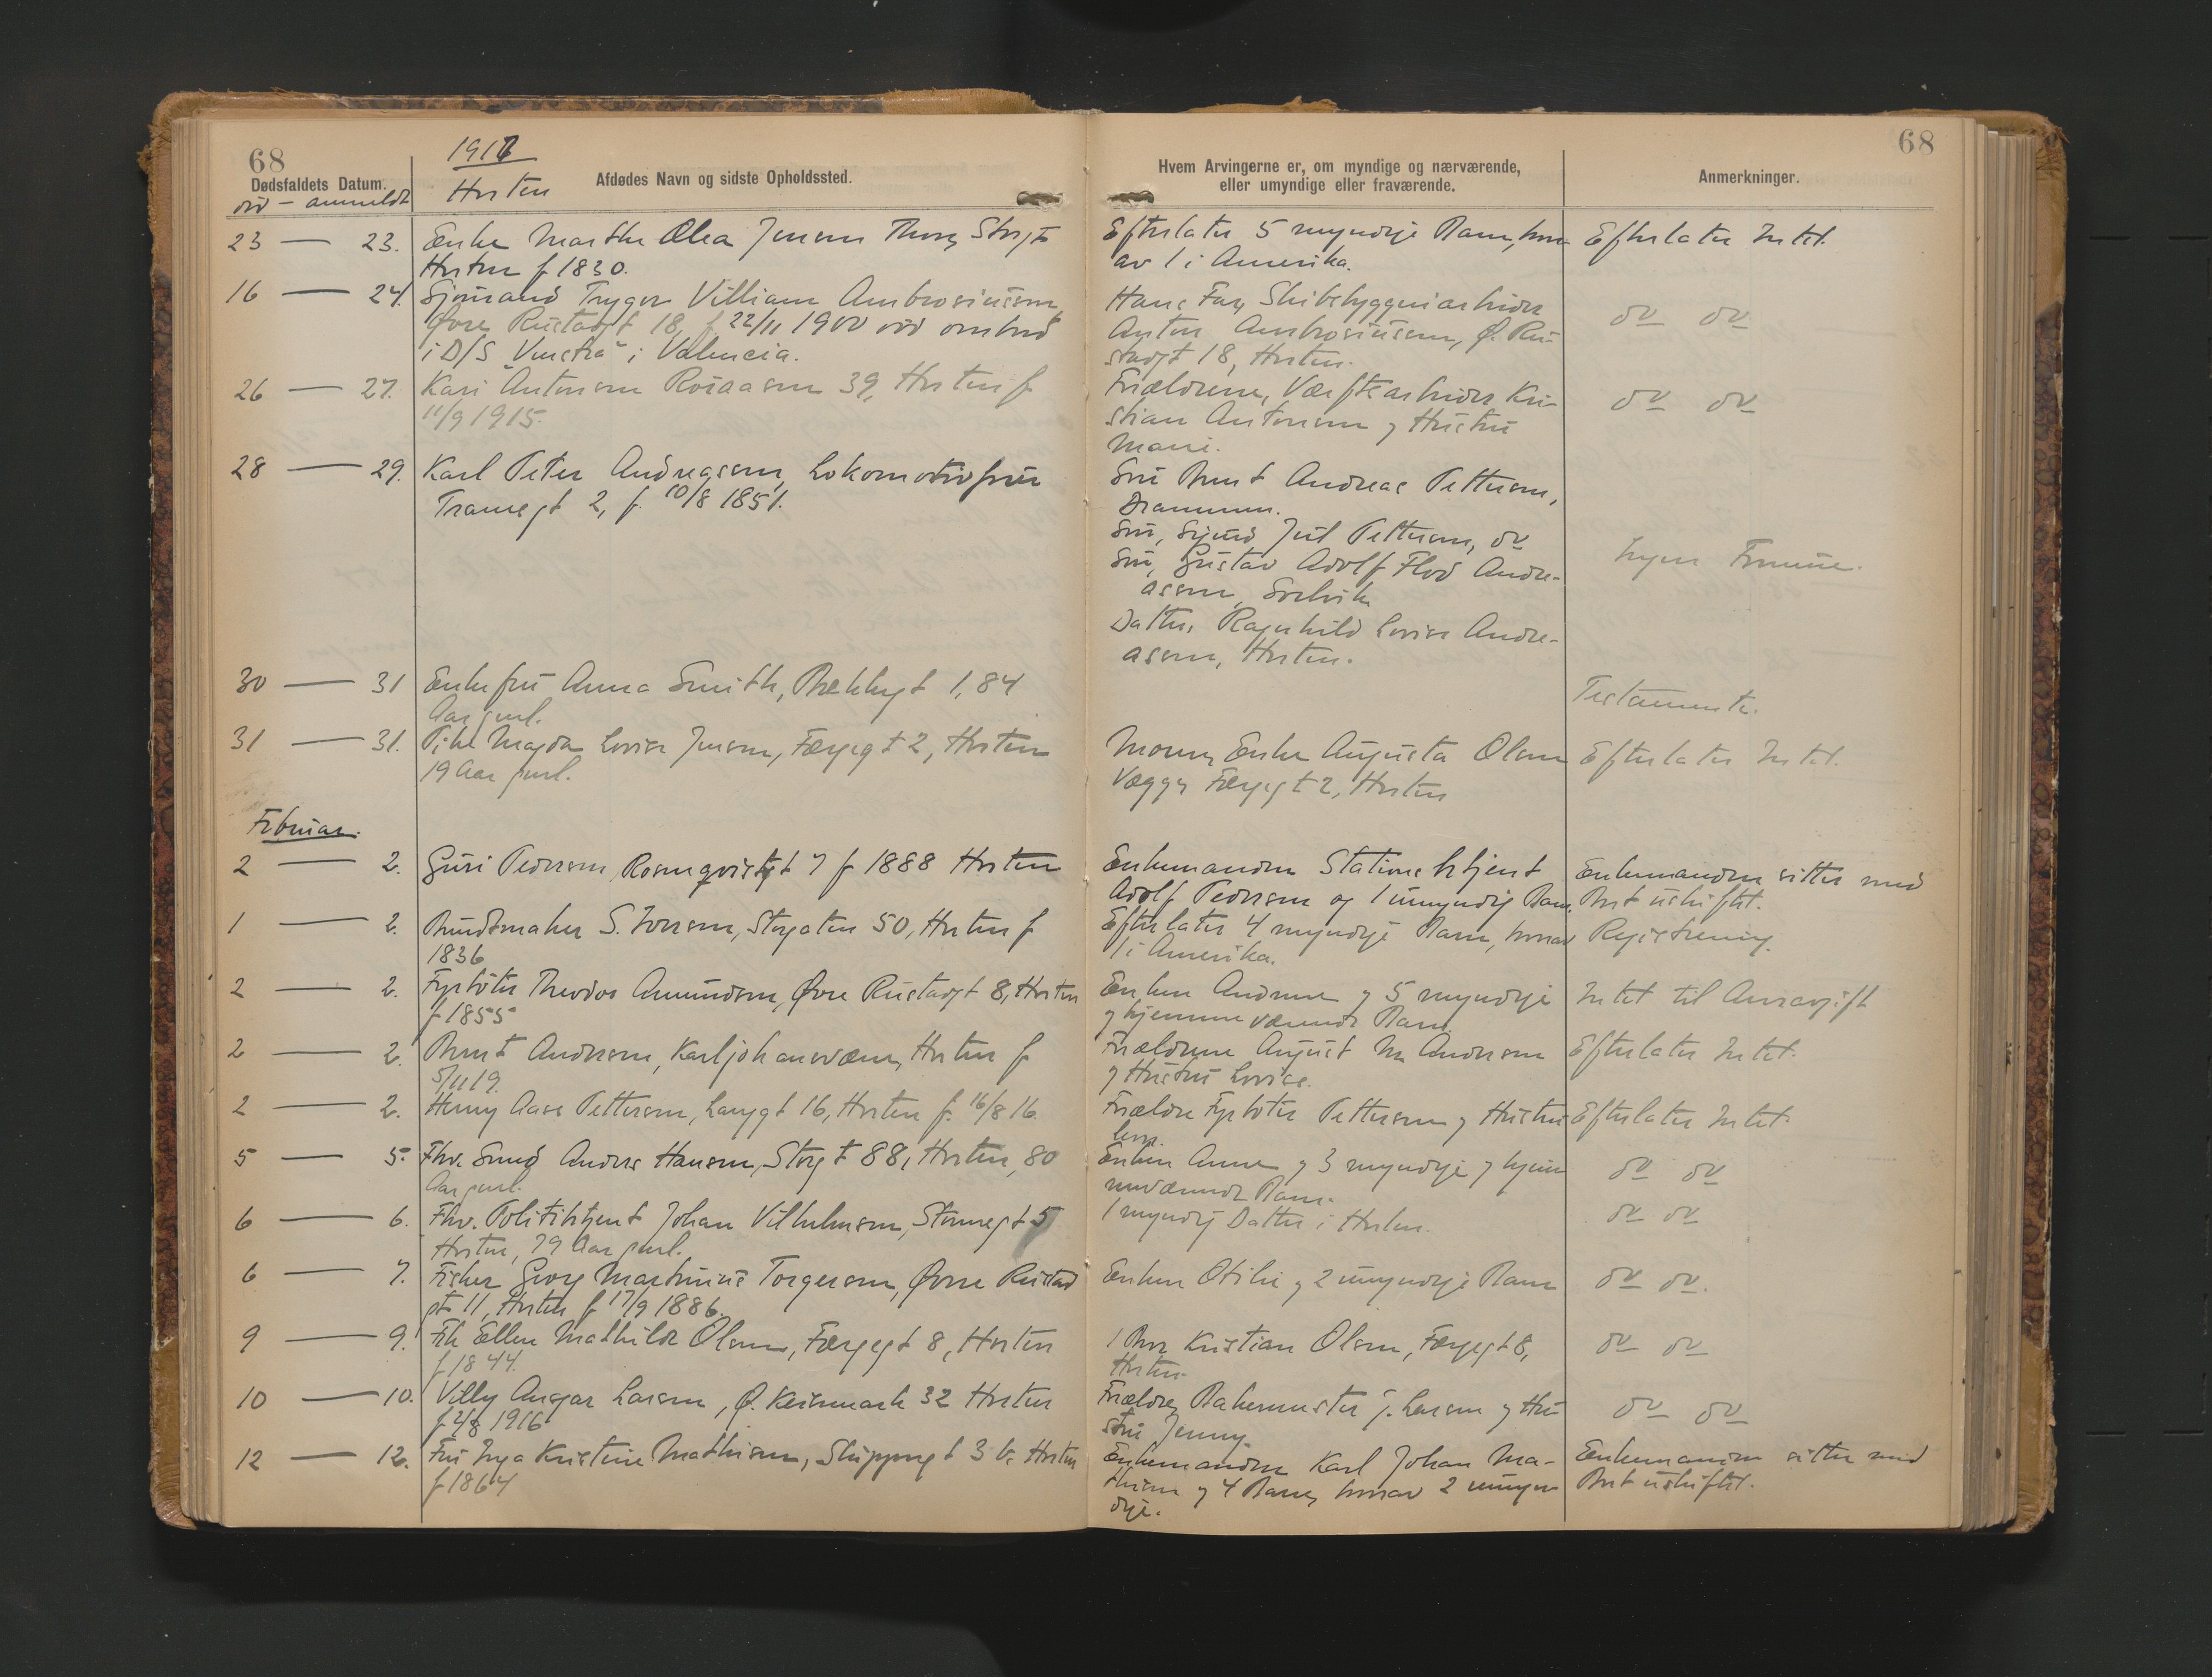 68
1917
Horten
Dødsfaldets Datum.
Afdødes Navn og sidste Opholdssted.
død — anmeldt
23 — 23. Enke Marthe Olea Jensen Storgt
Horten f 1830.
16 — 24. Sjømand Trygve Villiam Ambrosiussen,
Øvre Rustadgt 18, f. 22/11 1900 død ombord
i D/S "Venstra" i Valencia.
26 — 27. Kari Antonsen 39, Horten f
11/9 1915.
28 — 29. Karl Peter Andreassen, Lokomotivfører
Tranegt 2, f. 10/8 1851.
30 — 31 Enkefru Anna Smith, Bekkegt 1, 84
Aar gml.
31 — 31. Pike Magda Lovise Jensen, Færgegt 2, Horten
19 Aar gml.
Februar.
2 — 2. Guri Pedersen, Rosenqvistgt 7 f 1888 Horten
1 — 2. Bundtmaker S. Iversen, Storgaten 50, Horten f
1836
2 — 2. Fyrbøter Theodor Amundsen, Øvre Rustadgt 8, Horten
f 1855
2 — 2. Bernt Andersen, Karljohansværn, Horten f
5/11 19.
2 — 2. Henny Aase Pettersen, Langgt 16, Horten f. 16/8 16.
5 — 5. Fhv. Smed Anders Hansen, Storgt 88, Horten, 80
Aar gml.
6 — 6. Fhv. Politibtjent Johan Vilhelmsen, Stennegt 5
Horten, 79 Aar gml.
6 — 7. Fisker Georg Martinius Torgersen, Øvre Rustad
gt 11, Horten f 17/9 1886.
9 — 9. Frk Ellen Mathilde Olsen, Færgegt 8, Horten
f 1844.
10 — 10. Villy Ansgar Larsen, Ø. Keisemark 32 Horten
f 2/8 1916
12 — 12. Fru Inga Kristine Mathisen, Skippergt 3 b, Horten
f 1864
68
Hvem Arvingerne er, om myndige og nærværende,
eller umyndige eller fraværende.
Anmerkninger.
Efterlater 5 myndige Barn, hvor- Efterlater Intet.
av 1 i Amerika.
Hans Far, Skibsbyggeriarbeider
Anton Ambrosiussen, Ø. Ru-
stadgt 18, Horten.
do do
Forældrene, Værftsarbeider Kri-
stian Antonsen og Hustru
Marie.
do do
Søn Bernt Andreas Pettersen,
Drammen.
Søn, Sigurd Jul Pettersen, do
Søn, Gustav Adolf Flod Andre-
assen, Svelvik
Datter, Ragnhild Lovise Andre-
assen, Horten.
Ingen Formue.
Testamente.
Moren, Enke Augusta Olsen Efterlater Intet.
Vegger Færgegt 2, Horten
Enkemanden Stationsbtjent
Adolf Pedersen og 1 umyndig Barn.
Enkemanden sitter med
Bort uskiftet.
Efterlater 4 myndige Barn, hvorav Registrering.
1 i Amerika.
Enken Andrine og 5 myndige Intet til Arveavgift
og hjemmeværende Barn.
Forældrene August M. Andersen Efterlater Intet.
og Hustru Lovise.
Forældre Fyrbøter Pettersen og Hustru Efterlater Intet.
Enken Anne og 3 myndige og hjem-
meværende Barn.
do do
1 myndig Datter i Horten.
do do
Enken Otilie og 2 umyndige Barn
do do.
1 Bror Kristian Olsen, Færgegt 8,
Horten.
do do
Forældre, Bakermester J. Larsen og Hu-
stru Jenny.
do do
Enkemanden Karl Johan Ma-
thisen og 4 Barn, hvorav 2 umyn-
dige.
Enkemanden sitter med
Bort uskiftet.